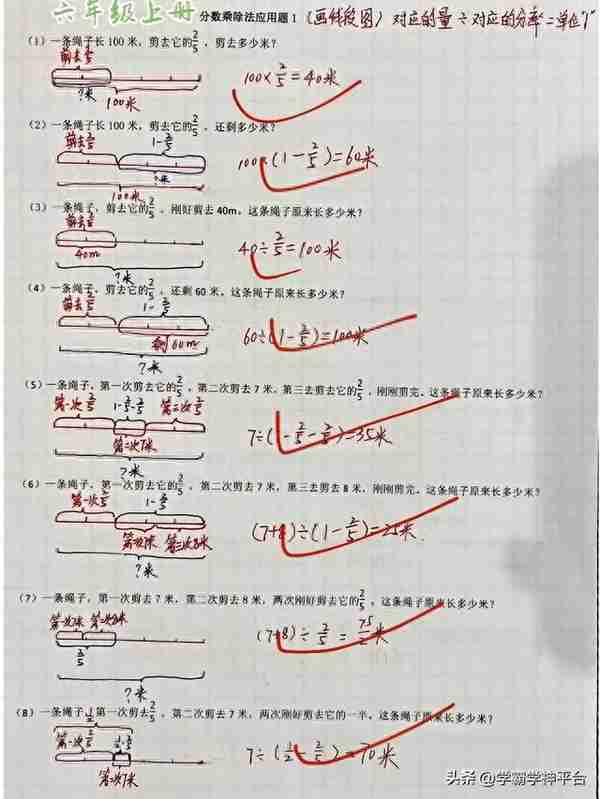 六年级上册 分数乘除法应用题1 (画线段图) 对应的量÷对应的分率=单位"1"
(1) 一条绳子长100米，剪去它的2/5，剪去多少米？
剪去2/5
?米
100米
100×2/5=40米
(2) 一条绳子长100米，剪去它的2/5，还剩多少米？
剪去2/5 1-2/5
?米
100米
100×(1-2/5)=60米
(3) 一条绳子，剪去它的2/5，刚好剪去40m，这条绳子原来长多少米？
剪去2/5
40m
?米
40÷2/5=100米
(4) 一条绳子，剪去它的2/5，还剩60米，这条绳子原来长多少米？
剪去2/5 1-2/5
剩60m
?米
60÷(1-2/5)=100米
(5) 一条绳子，第一次剪去它的2/5，第二次剪去7米，第三去剪去它的2/5，刚刚剪完，这条绳子原来长多少米？
第一次2/5 1-2/5-2/5 第三次2/5
第二次7米
?米
7÷(1-2/5-2/5)=35米
(6) 一条绳子，第一次剪去它的2/5，第二次剪去7米，第三去剪去8米，刚刚剪完，这条绳子原来长多少米？
第一次2/5 1-2/5
第二次7米 第三次8米
?米
(7+8)÷(1-2/5)=25米
(7) 一条绳子，第一次剪去7米，第二次剪去8米，两次刚好剪去它的2/5，这条绳子原来长多少米？
第一次7米 第二次8米
2/5
?米
(7+8)÷2/5=75/2米
(8) 一条绳子，第一次剪去2/5，第二次剪去7米，两次刚好剪去它的一半，这条绳子原来长多少米？
1/2
第一次2/5 1/2-2/5
第二次7米
7÷(1/2-2/5)=70米
头条@学霸学神平台